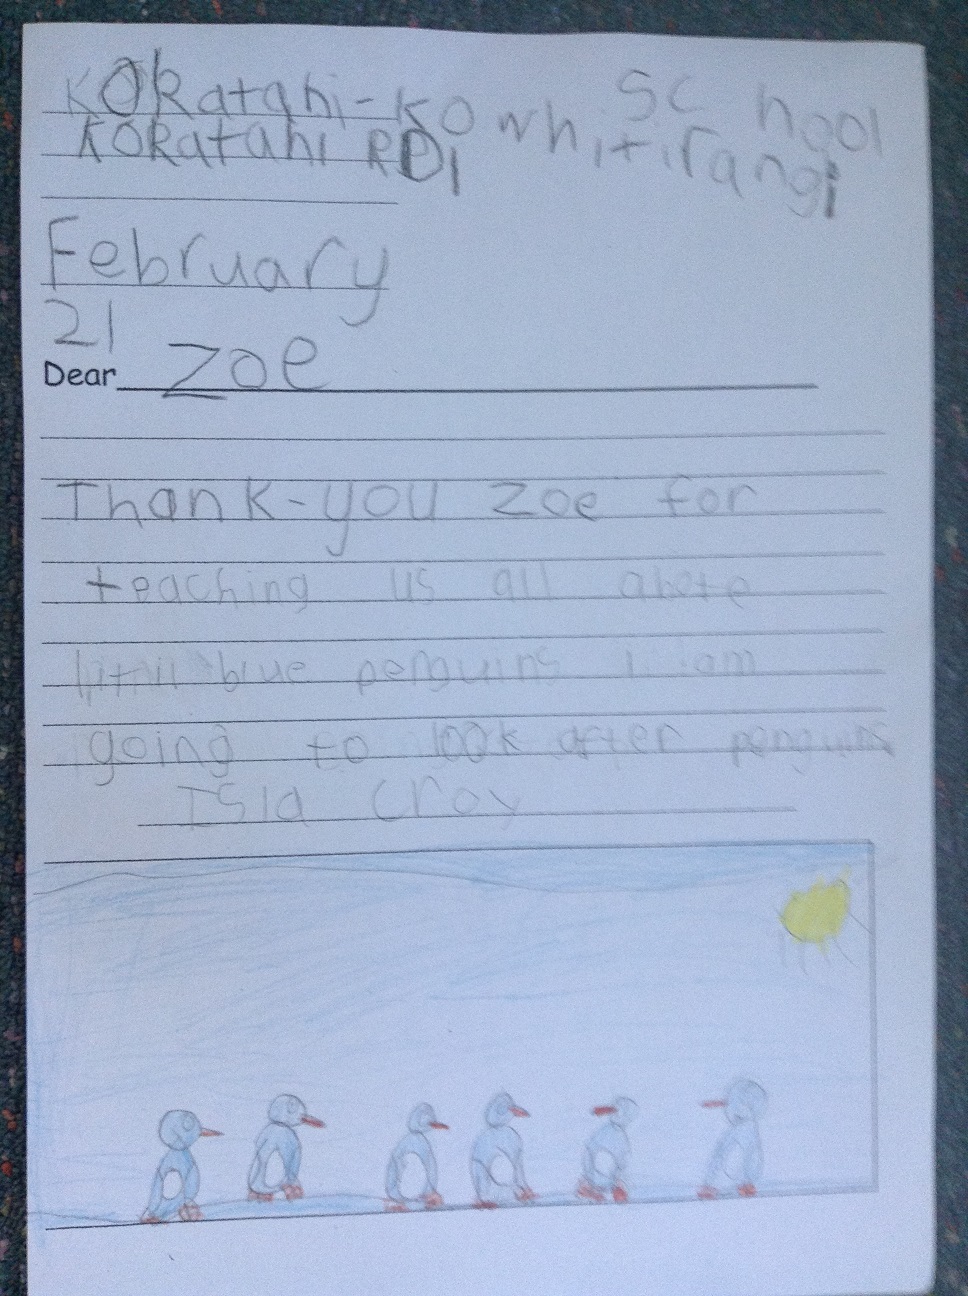 Kokatahi-Kowhitirangi School
Kokatahi RD1
February
21
Dear Zoe
Thank-you Zoe for
teaching us all
blue penguins I am
going to look after penguins
Isla